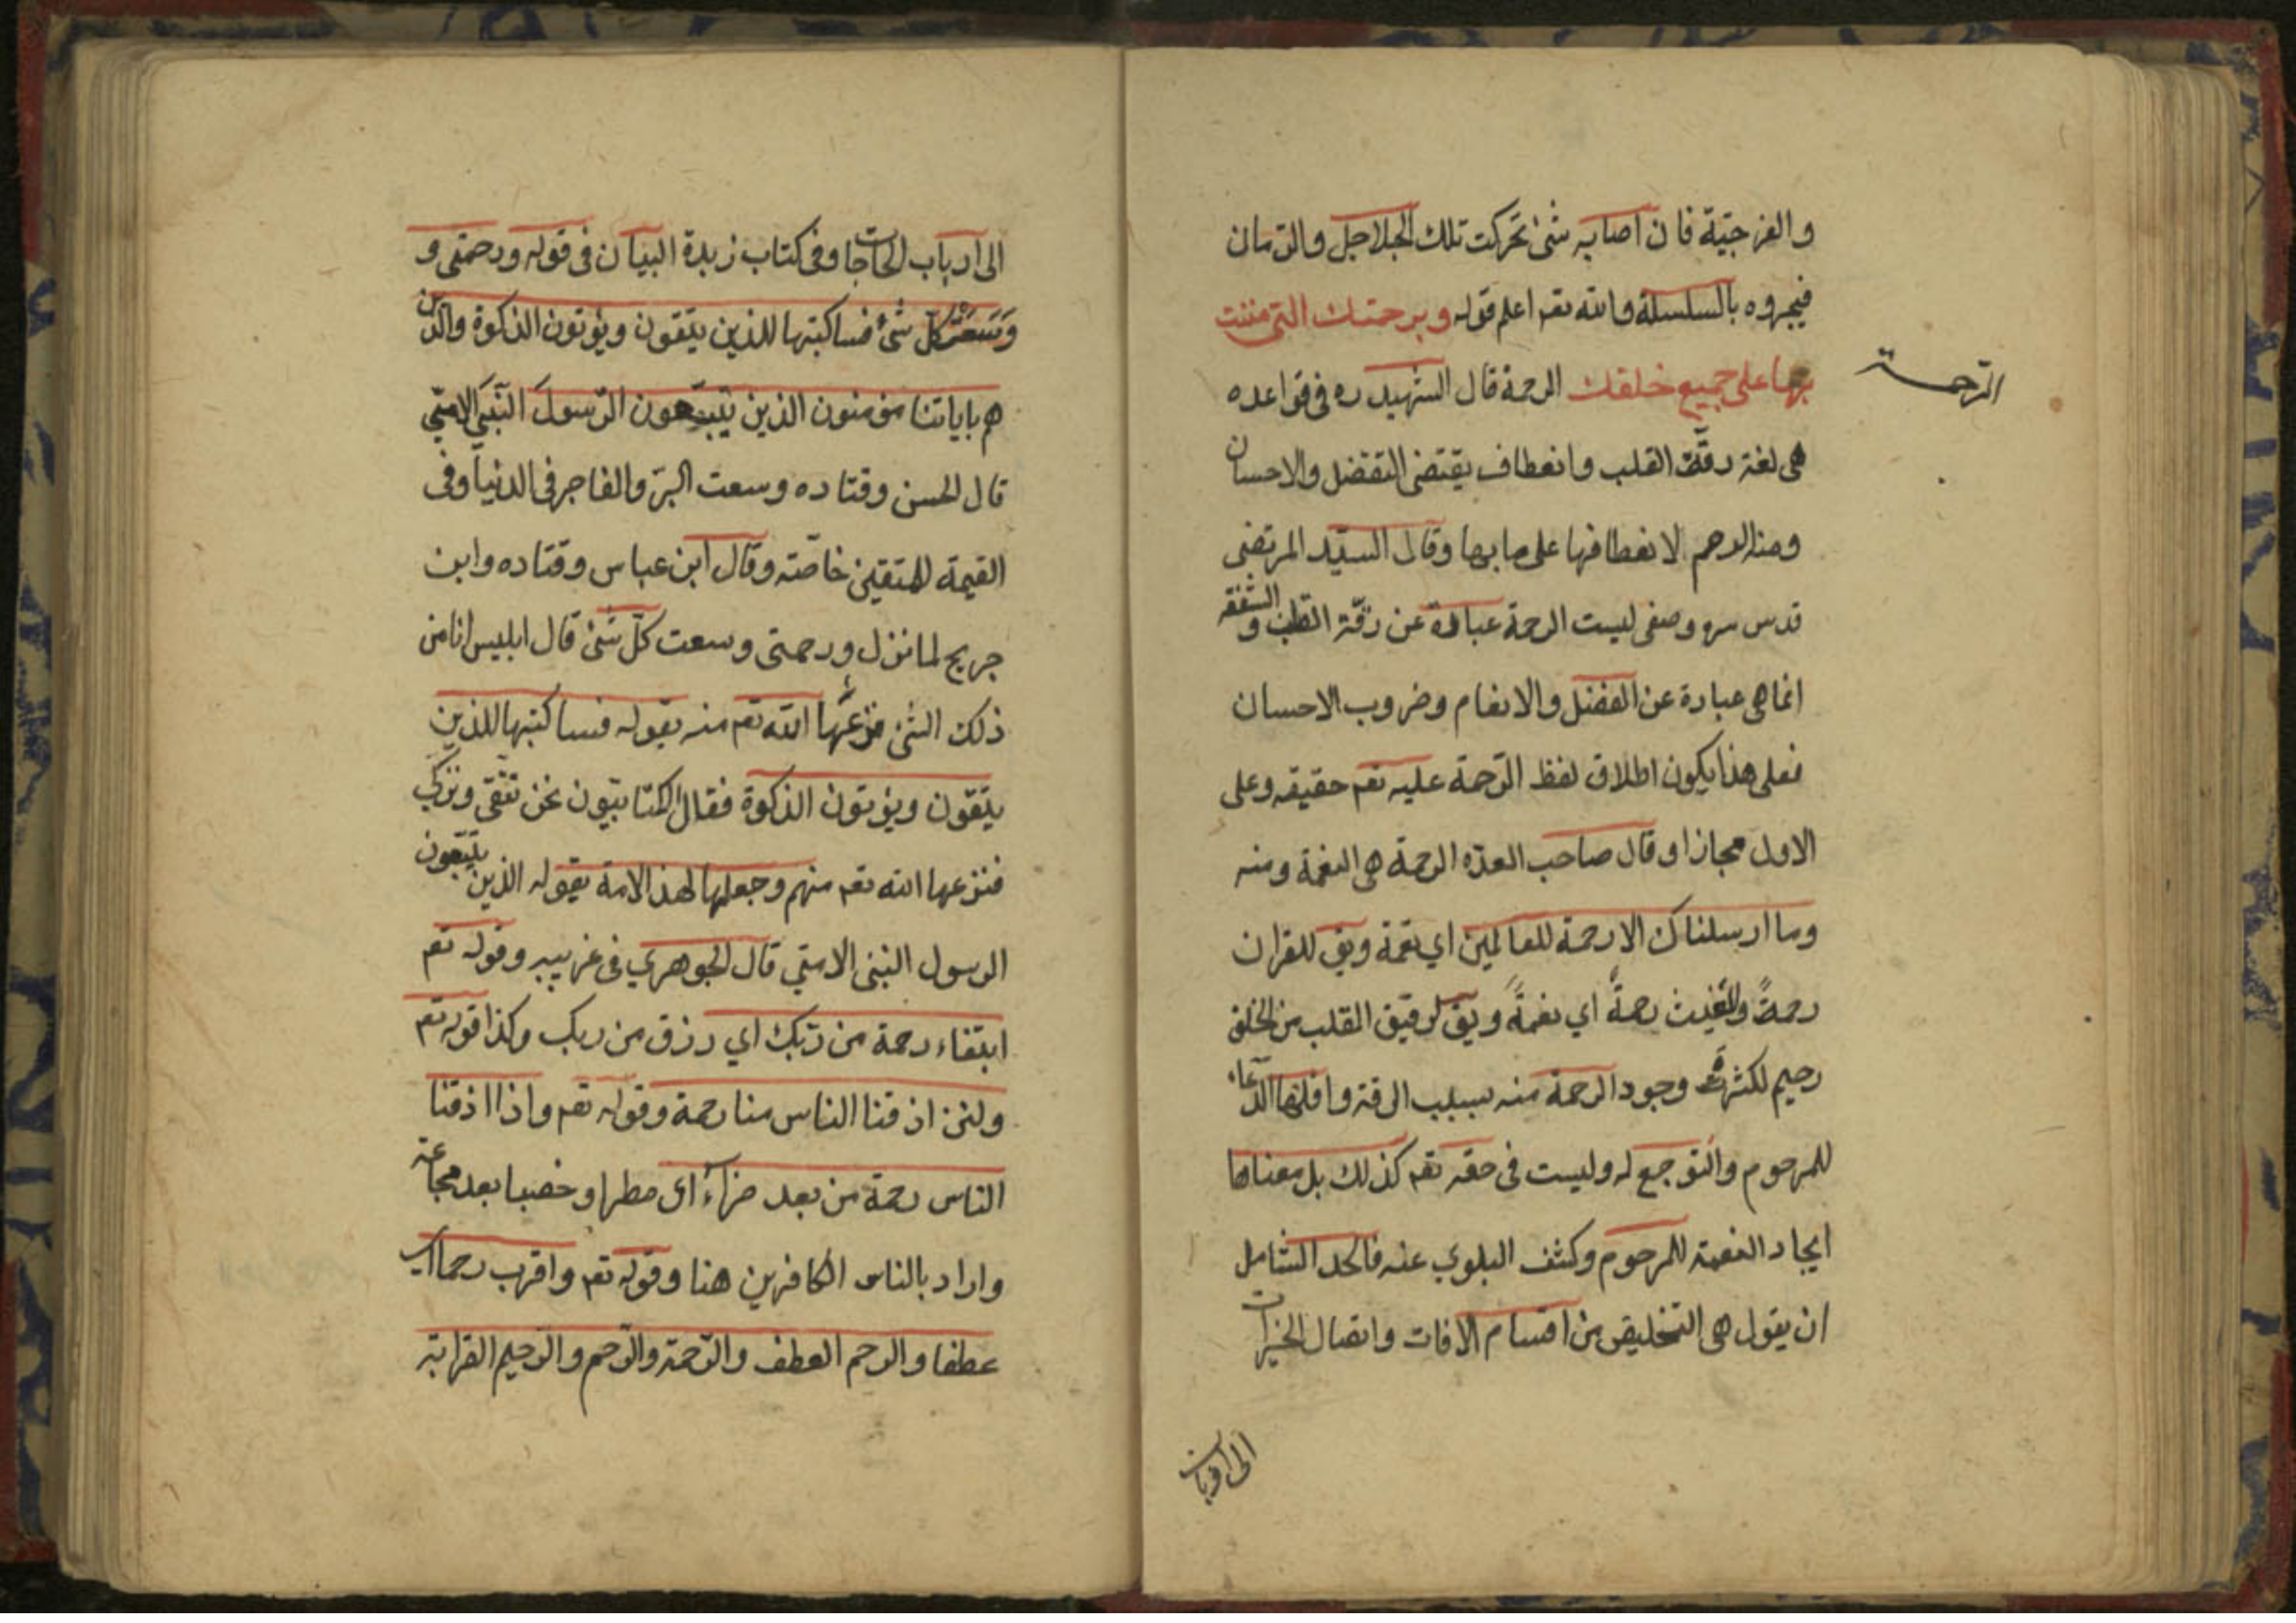 والفرجيّة فان اصابه شئ تحركت تلك الجلاجل والزمان
فيجروه بالسلسلة والله تعم اعلم قوله وبرحمتك التي مننت
بها على جميع خلقك الرحمة قال الشهيد ره في قواعده
الرحمة
هى لغة رقة القلب وانعطاف يقتضى التفضل والاحسان
ومنه الرحم لانعطافها على ما بها وقال السيّد المرتضى
قدس سره وصفى ليست الرحمة عبارة عن رقّة القلب والشفقه
انما هى عبارة عن الفضل والانعام وضروب الاحسان
فعلى هذا يكون اطلاق لفظ الرّحمة عليه تعم حقيقه وعلى
الاول مجازا وقال صاحب العدّه الرحمة هى النعمة ومنه
وما ارسلناك الا رحمة للعالمين اي نعمة ويق للقران
رحمةً وللغيث رحمةً اي نعمةً ويق لرقيق القلب من الخلق
رحيم لكثرة وجود الرحمة منه بسبب الرقة واقلها الدّعاء
للمرحوم والتوجع له وليست فى حقه تعم كذلك بل معناها
ايجاد النعمة للمرحوم وكشف البلوي عنه فالحد الشامل
ان يقول هى التخليص من اقسام الافات وايصال الخيرات
الى ارباب
الى ارباب الحاجات وفى كتاب زبدة البيان فى قوله ورحمتى و
وَسِعَتْ كلّ شئ فساكتبها للذين يتقون ويؤتون الزكوة والذين
هم باياتنا مؤمنون الذين يتبعون الرّسول النّبي الامّي
قال الحسن وقتاده وسعت البرّ والفاجر فى الدنيا وفى
القيمة للمتقين خاصّته وقال ابن عباس وقتاده وابن
جريج لما نزل ورحمتى وسعت كلّ شئ قال ابليس انا من
ذلك الشئ فنزعها الله تعم منه بقوله فساكتبها للذين
يتقون ويؤتون الزكوة فقال الكتابيّون نحن نتقى ونزكي
فنزعها الله تعم منهم وجعلها لهذه الامة بقوله الذين يتبعون
الرسول النبى الامّي قال الجوهري فى غريبه وقوله تعم
ابتغاء رحمة من ربّك اي رزق من ربك وكذا قوله تعم
ولئن اذقنا الناس منا رحمة وقوله تعم واذا اذقنا
الناس رحمة من بعد ضراء اى مطرا وخصبا بعد مجاعة
واراد بالناس الكافرين هنا وقوله تعم واقرب رحما اى
عطفا والرحم العطف والرّحمة والرّحم والرّحيم القرابة